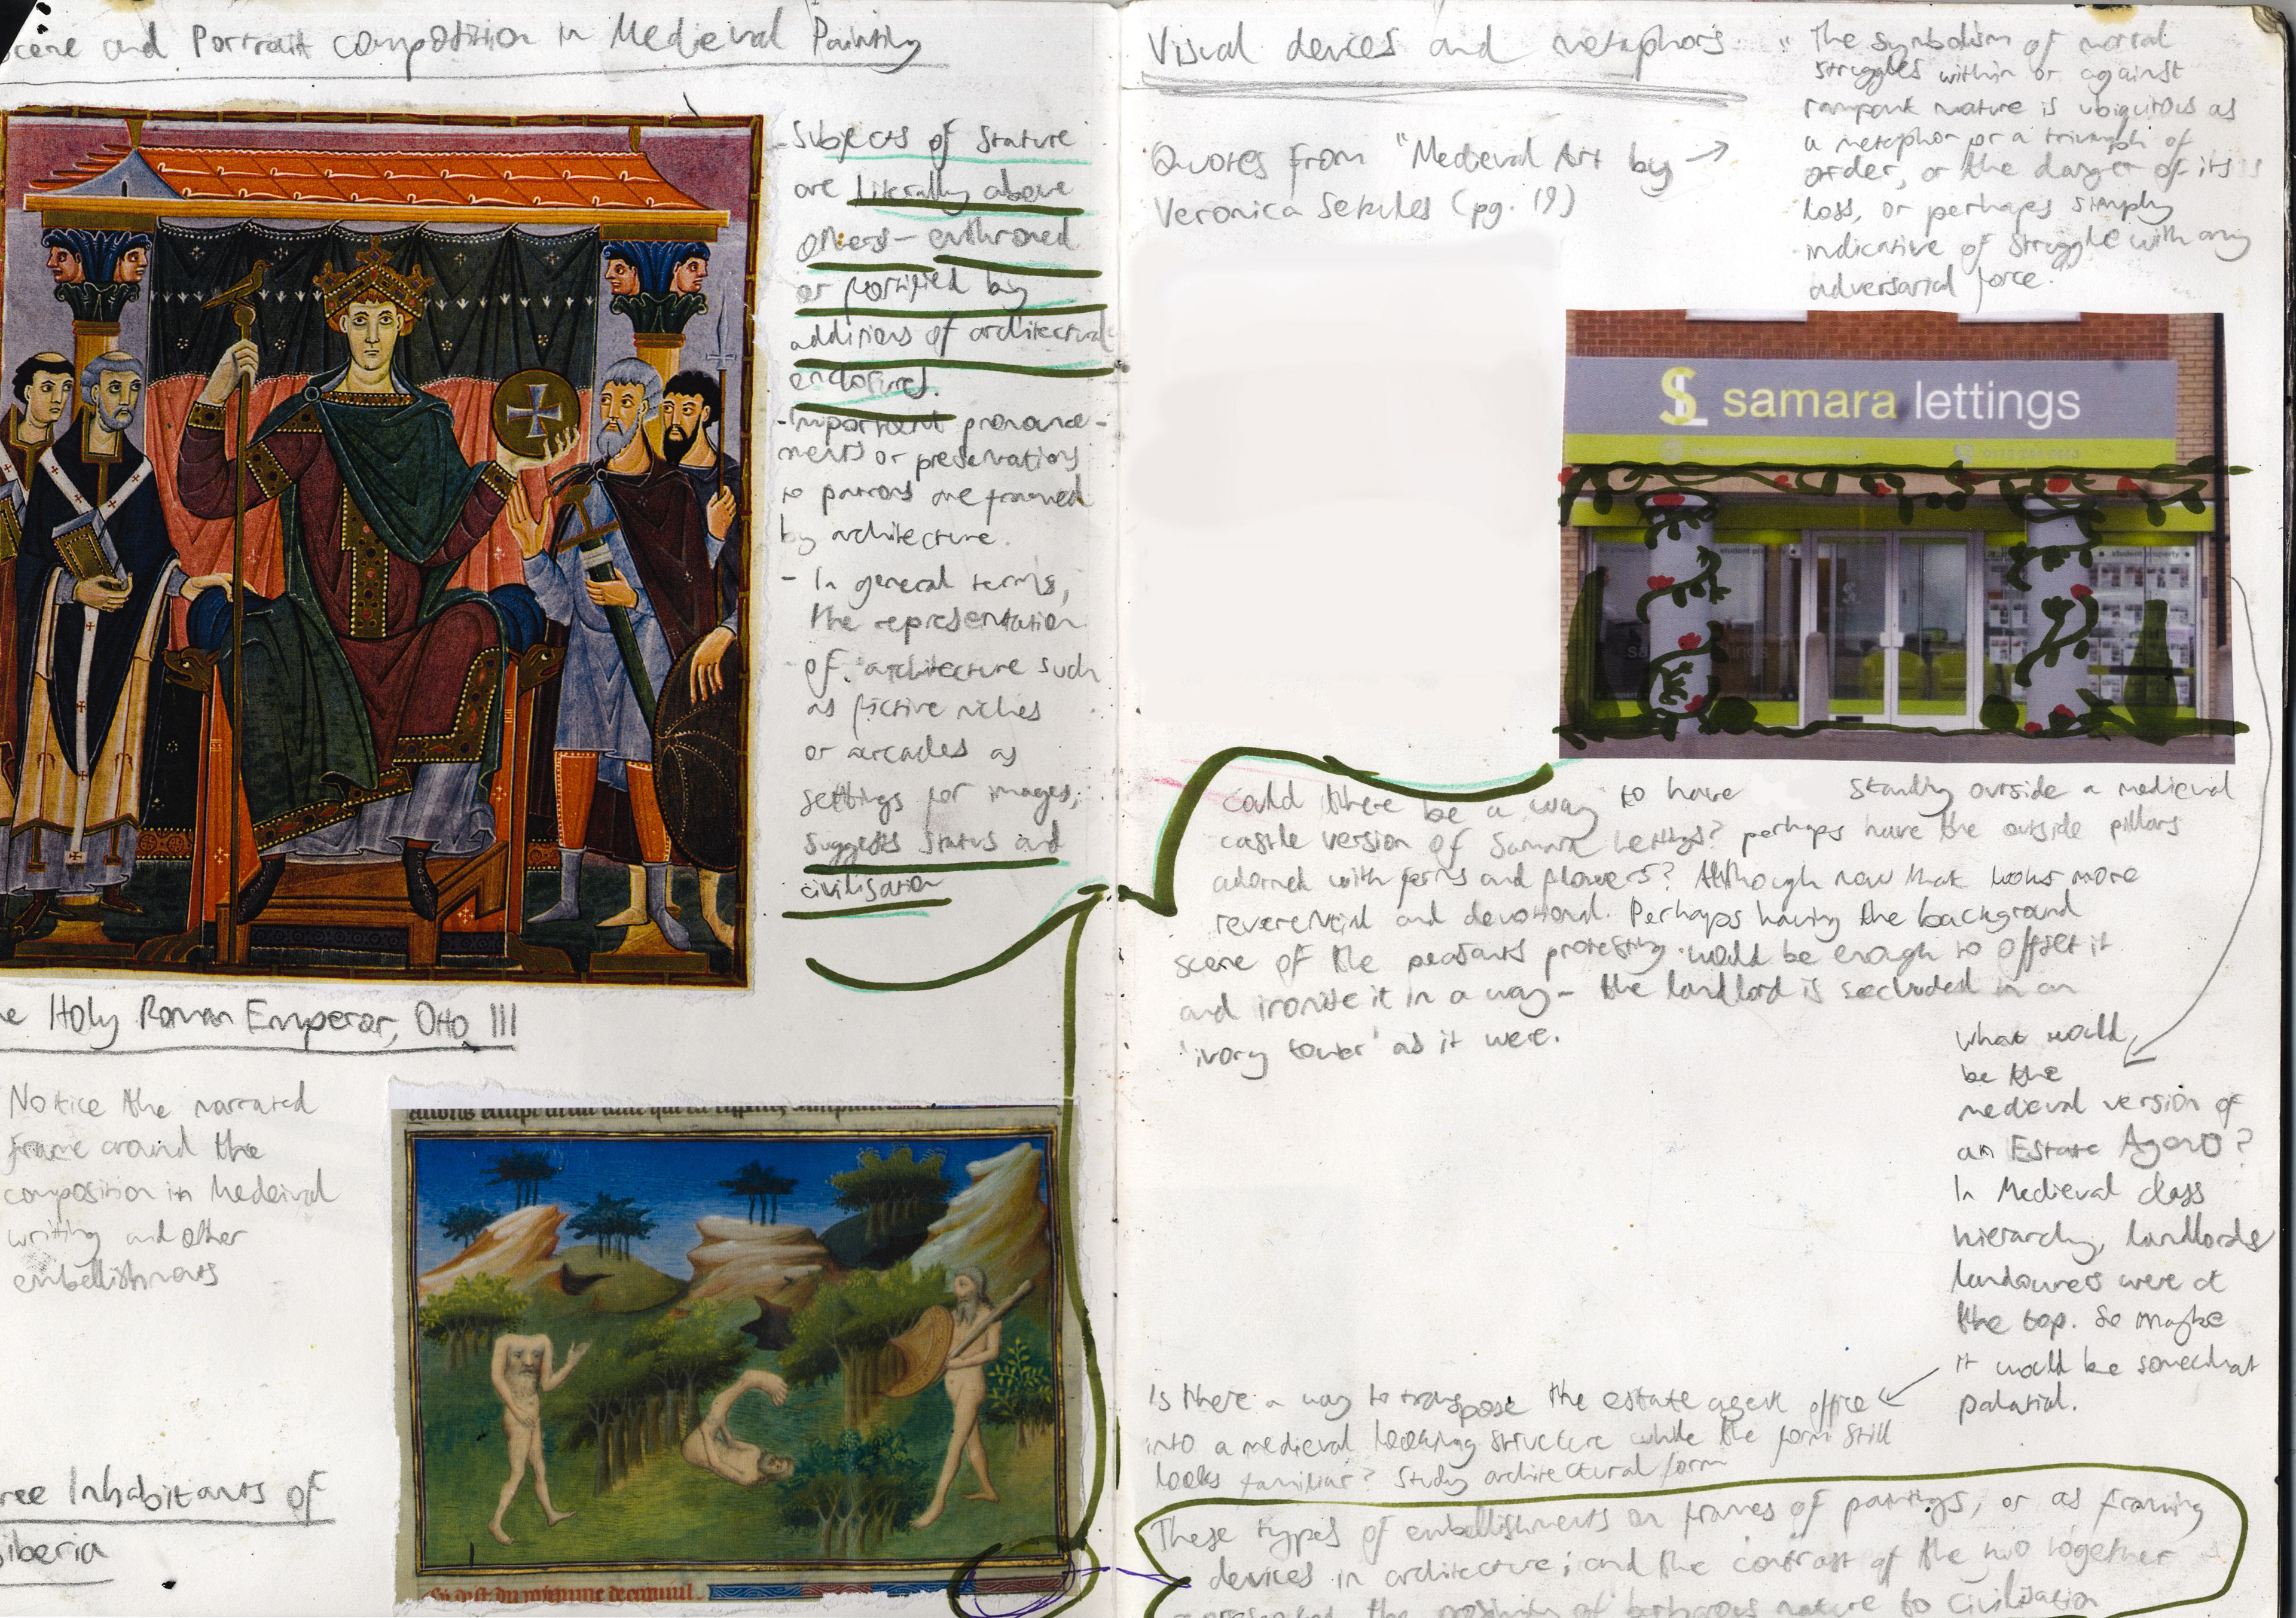 cene and Portrait composition in Medieval Painting
- Subjects of Stature
are literally above
others - enthroned
or fortified by
additions of architectural
enclosures.
- Important pronounce-
ments or presentations
to patrons are framed
by architecture.
- In general terms,
the representation
of architecture such
as fictive niches
or arcades as
settings for images,
suggests status and
civilisation
e Holy Roman Emperor, Otto III
Notice the narrated
frame around the
composition in Medeival
writing and other
embellishments
ree Inhabitants of
iberia
Visual devices and metaphors
Quotes from "Medieval Art by
Veronica Sekules (pg. 19)
"The symbolism of mortal
struggles within or against
rampant nature is ubiquitous as
a metaphor or a triumph of
order, or the danger of its
loss, or perhaps simply
indicative of struggle with any
adversarial force."
SL samara lettings
student property
could there be a way to have standing outside a medieval
castle version of Samara Lettings? perhaps have the outside pillars
adorned with ferns and flowers? Although now that looks more
reverential and devotional. Perhaps having the background
scene of the peasants protesting would be enough to offset it
and ironise it in a way - the landlord is secluded in an
'ivory tower' as it were.
What would
be the
medieval version of
an Estate Agent?
In Medieval class
hierarchy, landlords
landowners were at
the top. So maybe
it would be somewhat
palatial.
Is there a way to transpose the estate agent office
into a medieval looking structure while the form still
looks familiar? Study architectural form
These types of embellishments on frames of paintings, or as framing
devices in architecture; and the contrast of the two together
the proximity of barbarous nature to civilisation